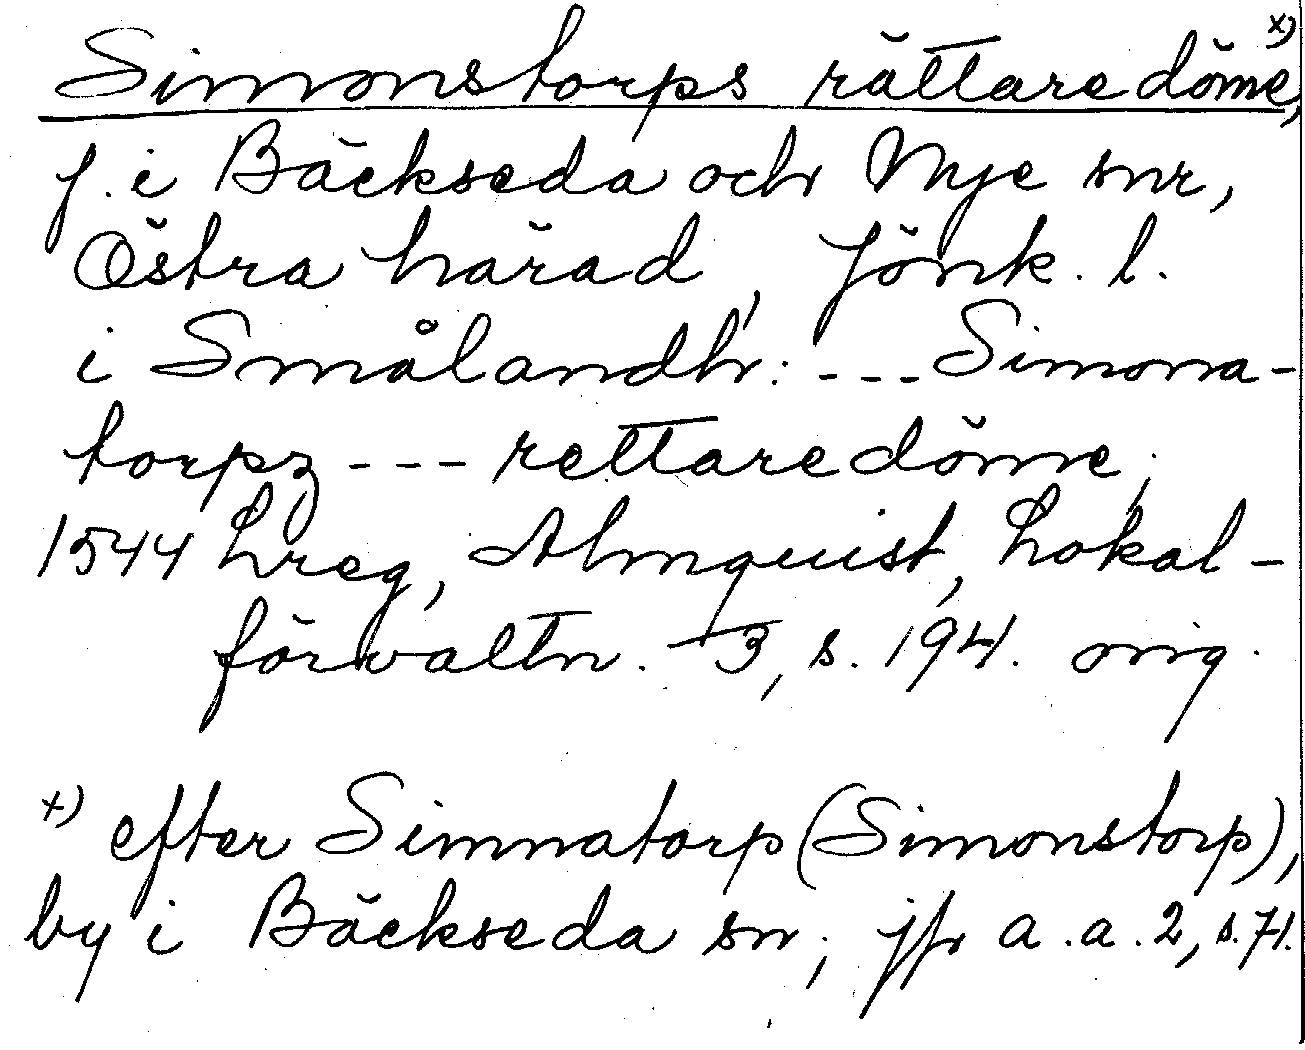 Simonstorps rättaredöme, x)
f. i Bäckseda och Nye snr,
Östra härad, Jönk. l.
i Smålandhr: --- Simona-
torpz --- rettaredöme,
1544 Lreg, Almquist, Lokal-
förvaltn. 3, s. 194. orig.
x) efter Simnatorp (Simonstorp),
by i Bäckseda sn; jfr a.a. 2, s. 71.